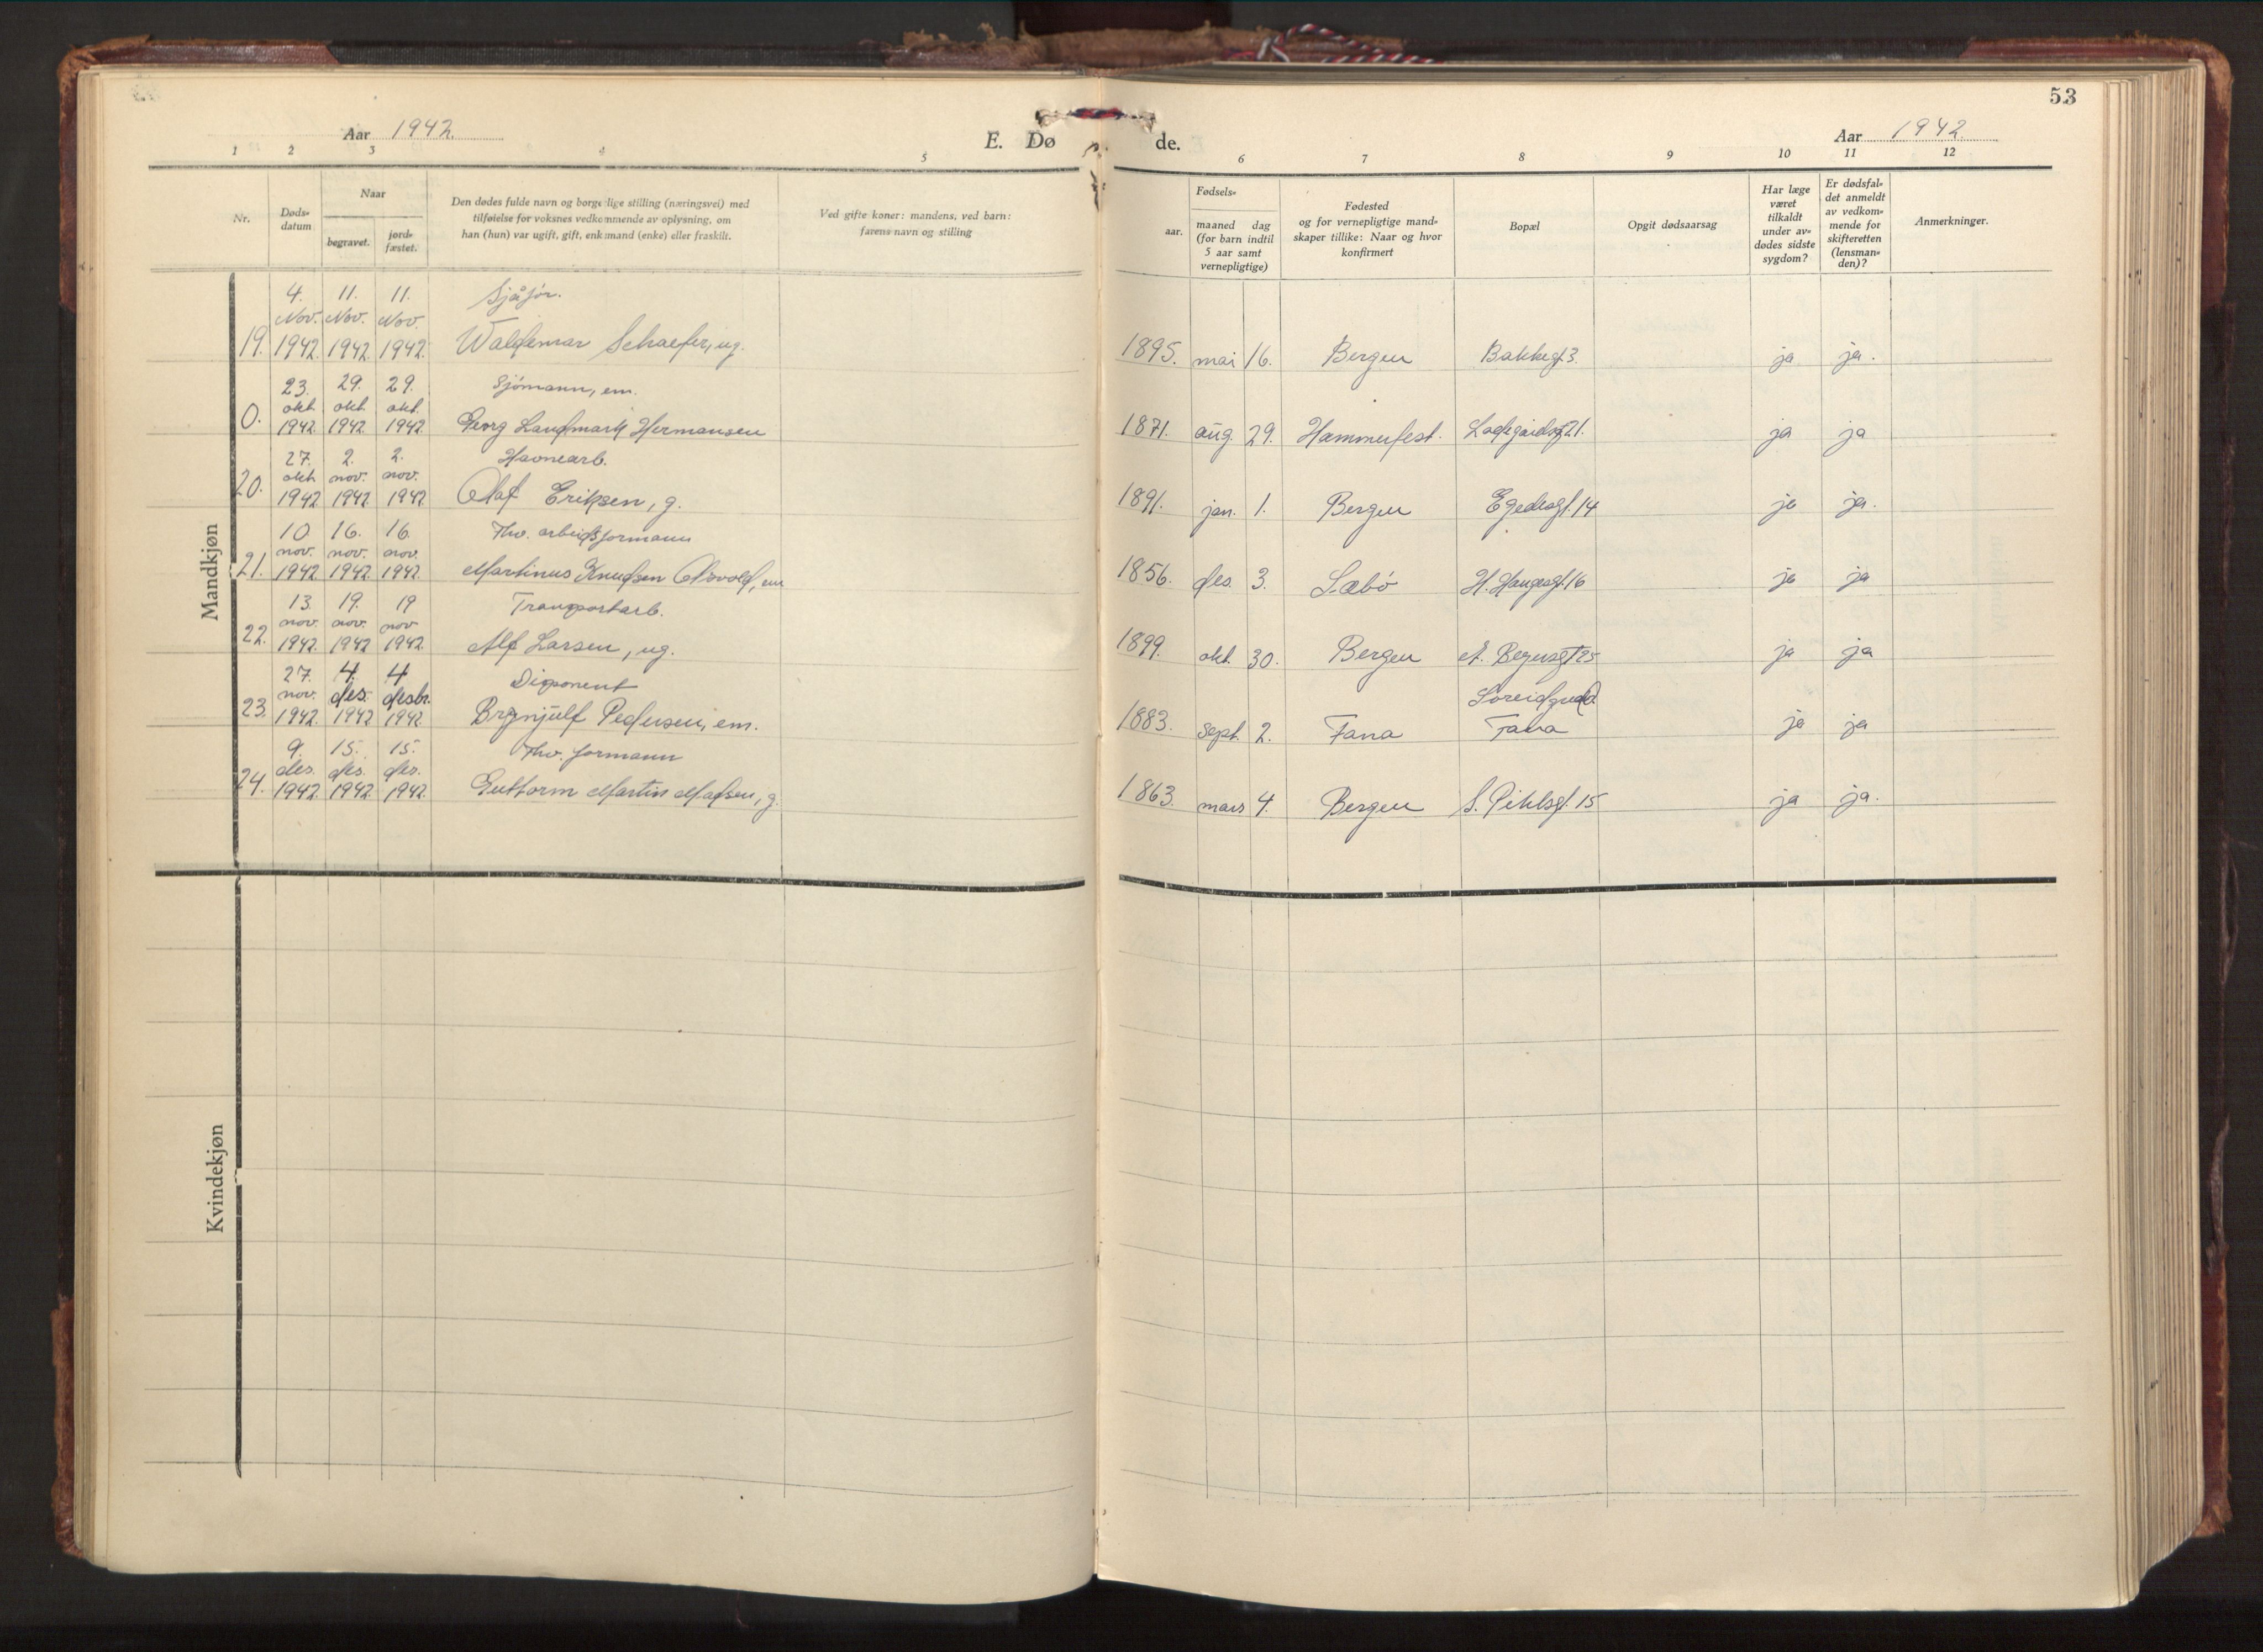 53
Aar 1942
E. Dø
de.
Aar 1942
1 2 3 4 5
6 7 8 9 10 11 12
Nr.
Døds-
datum
Naar
begravet.
jord-
fæstet.
Den dødes fulde navn og borgerlige stilling (næringsvei) med
tilføielse for voksnes vedkommende av oplysning, om
han (hun) var ugift, gift, enkemand (enke) eller fraskilt.
Ved gifte koner: mandens, ved barn:
farens navn og stilling
Fødsels-
aar.
maaned dag
(for barn indtil
5 aar samt
vernepligtige)
Fødested
og for vernepligtige mand-
skaper tillike: Naar og hvor
konfirmert
Bopæl
Opgit dødsaarsag
Har læge
været
tilkaldt
under av-
dødes sidste
sygdom?
Er dødsfal-
det anmeldt
av vedkom-
mende for
skifteretten
(lensman-
den)?
Anmerkninger.
Mandkjøn
4. 11. 11. Sjåfør.
Nov. Nov. Nov.
19. 1942 1942 1942. Waldemar Schaefer, ug. 1895. mai 16. Bergen Bakkegt. 3. ja ja.
23. 29. 29. Sjömann, em.
okt. okt. okt.
0. 1942. 1942. 1942. Georg Landmark Hermansen 1871. aug. 29. Hammerfest. Ladegårdsgt 21. ja ja
27. 2. 2. Havnearb.
okt. nov. nov.
20. 1942 1942 1942. Olaf Eriksen, g. 1891. jan. 1. Bergen Egedesgt. 14 ja ja.
10. 16. 16. Fhv. arbeidsformann
nov. nov. nov.
21. 1942 1942. 1942. Martinus Knudsen 1856. des. 3. Sæbö H. Haugesgt. 16 ja ja
13. 19. 19 Transportarb.
nov. nov. nov
22. 1942. 1942 1942 Alf Larsen, ug. 1899. okt. 30. Bergen ja ja
27. 4. 4 Disponent
nov. des. desbr.
23. 1942. 1942 1942 Brynjulf Pedersen, em. 1883. sept. 2. Fana Fana ja ja
9. 15. 15. Fhv. formann
des. des. des.
24. 1942. 1942. 1942. Guttorm Martin Madsen, g. 1863. mars 4. Bergen S. Pihlsgt. 15 ja ja.
Kvindekjøn